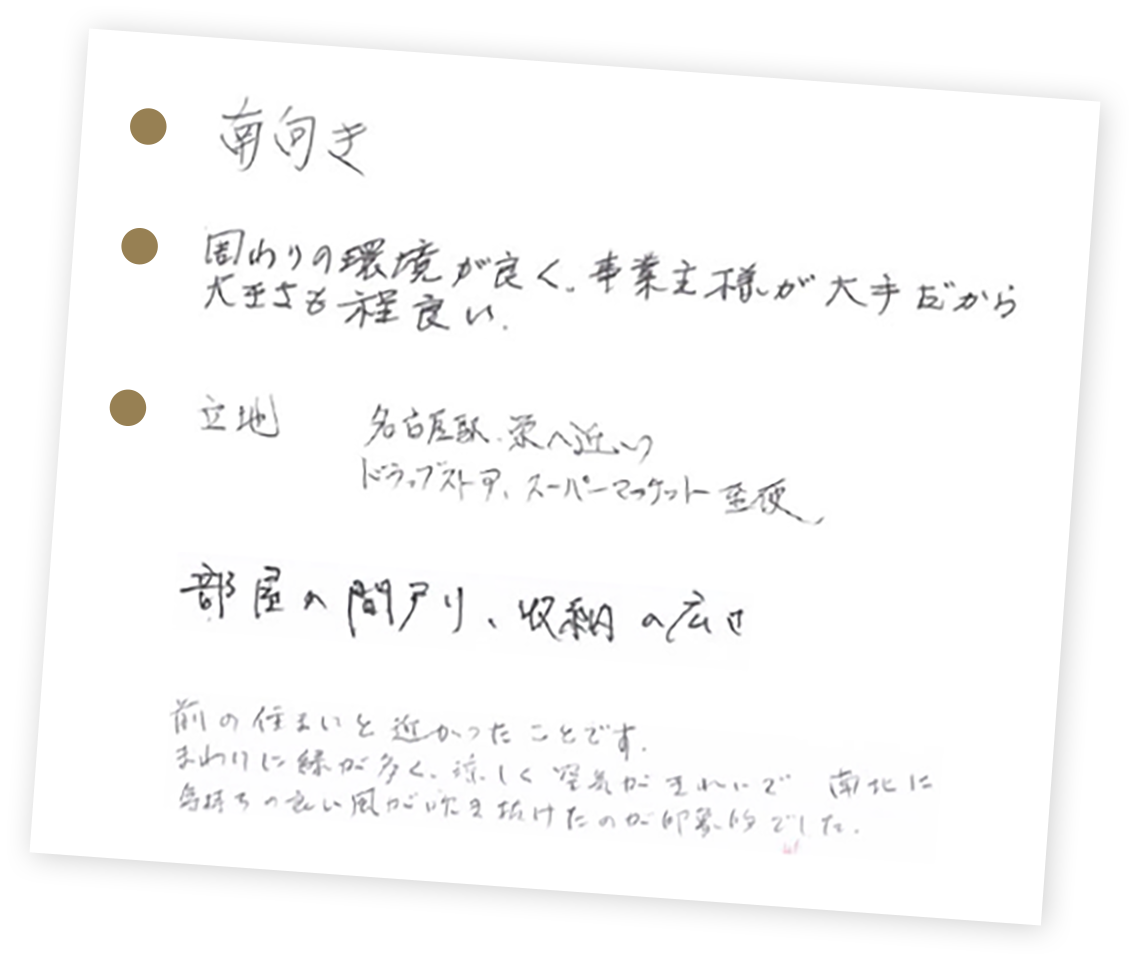 南向き
周わりの環境が良く、事業主様が大手だから
大きさも程良い.
立地 名古屋駅、栄へ近い
ドラッグストア、スーパーマーケット 至便
部屋の間戸り、収納の広さ
前の住まいと近かったことです.
まわりに緑が多く、涼しく 空気がきれいで 南北に
気持ちの良い風が吹き抜けたのが印象的でした.